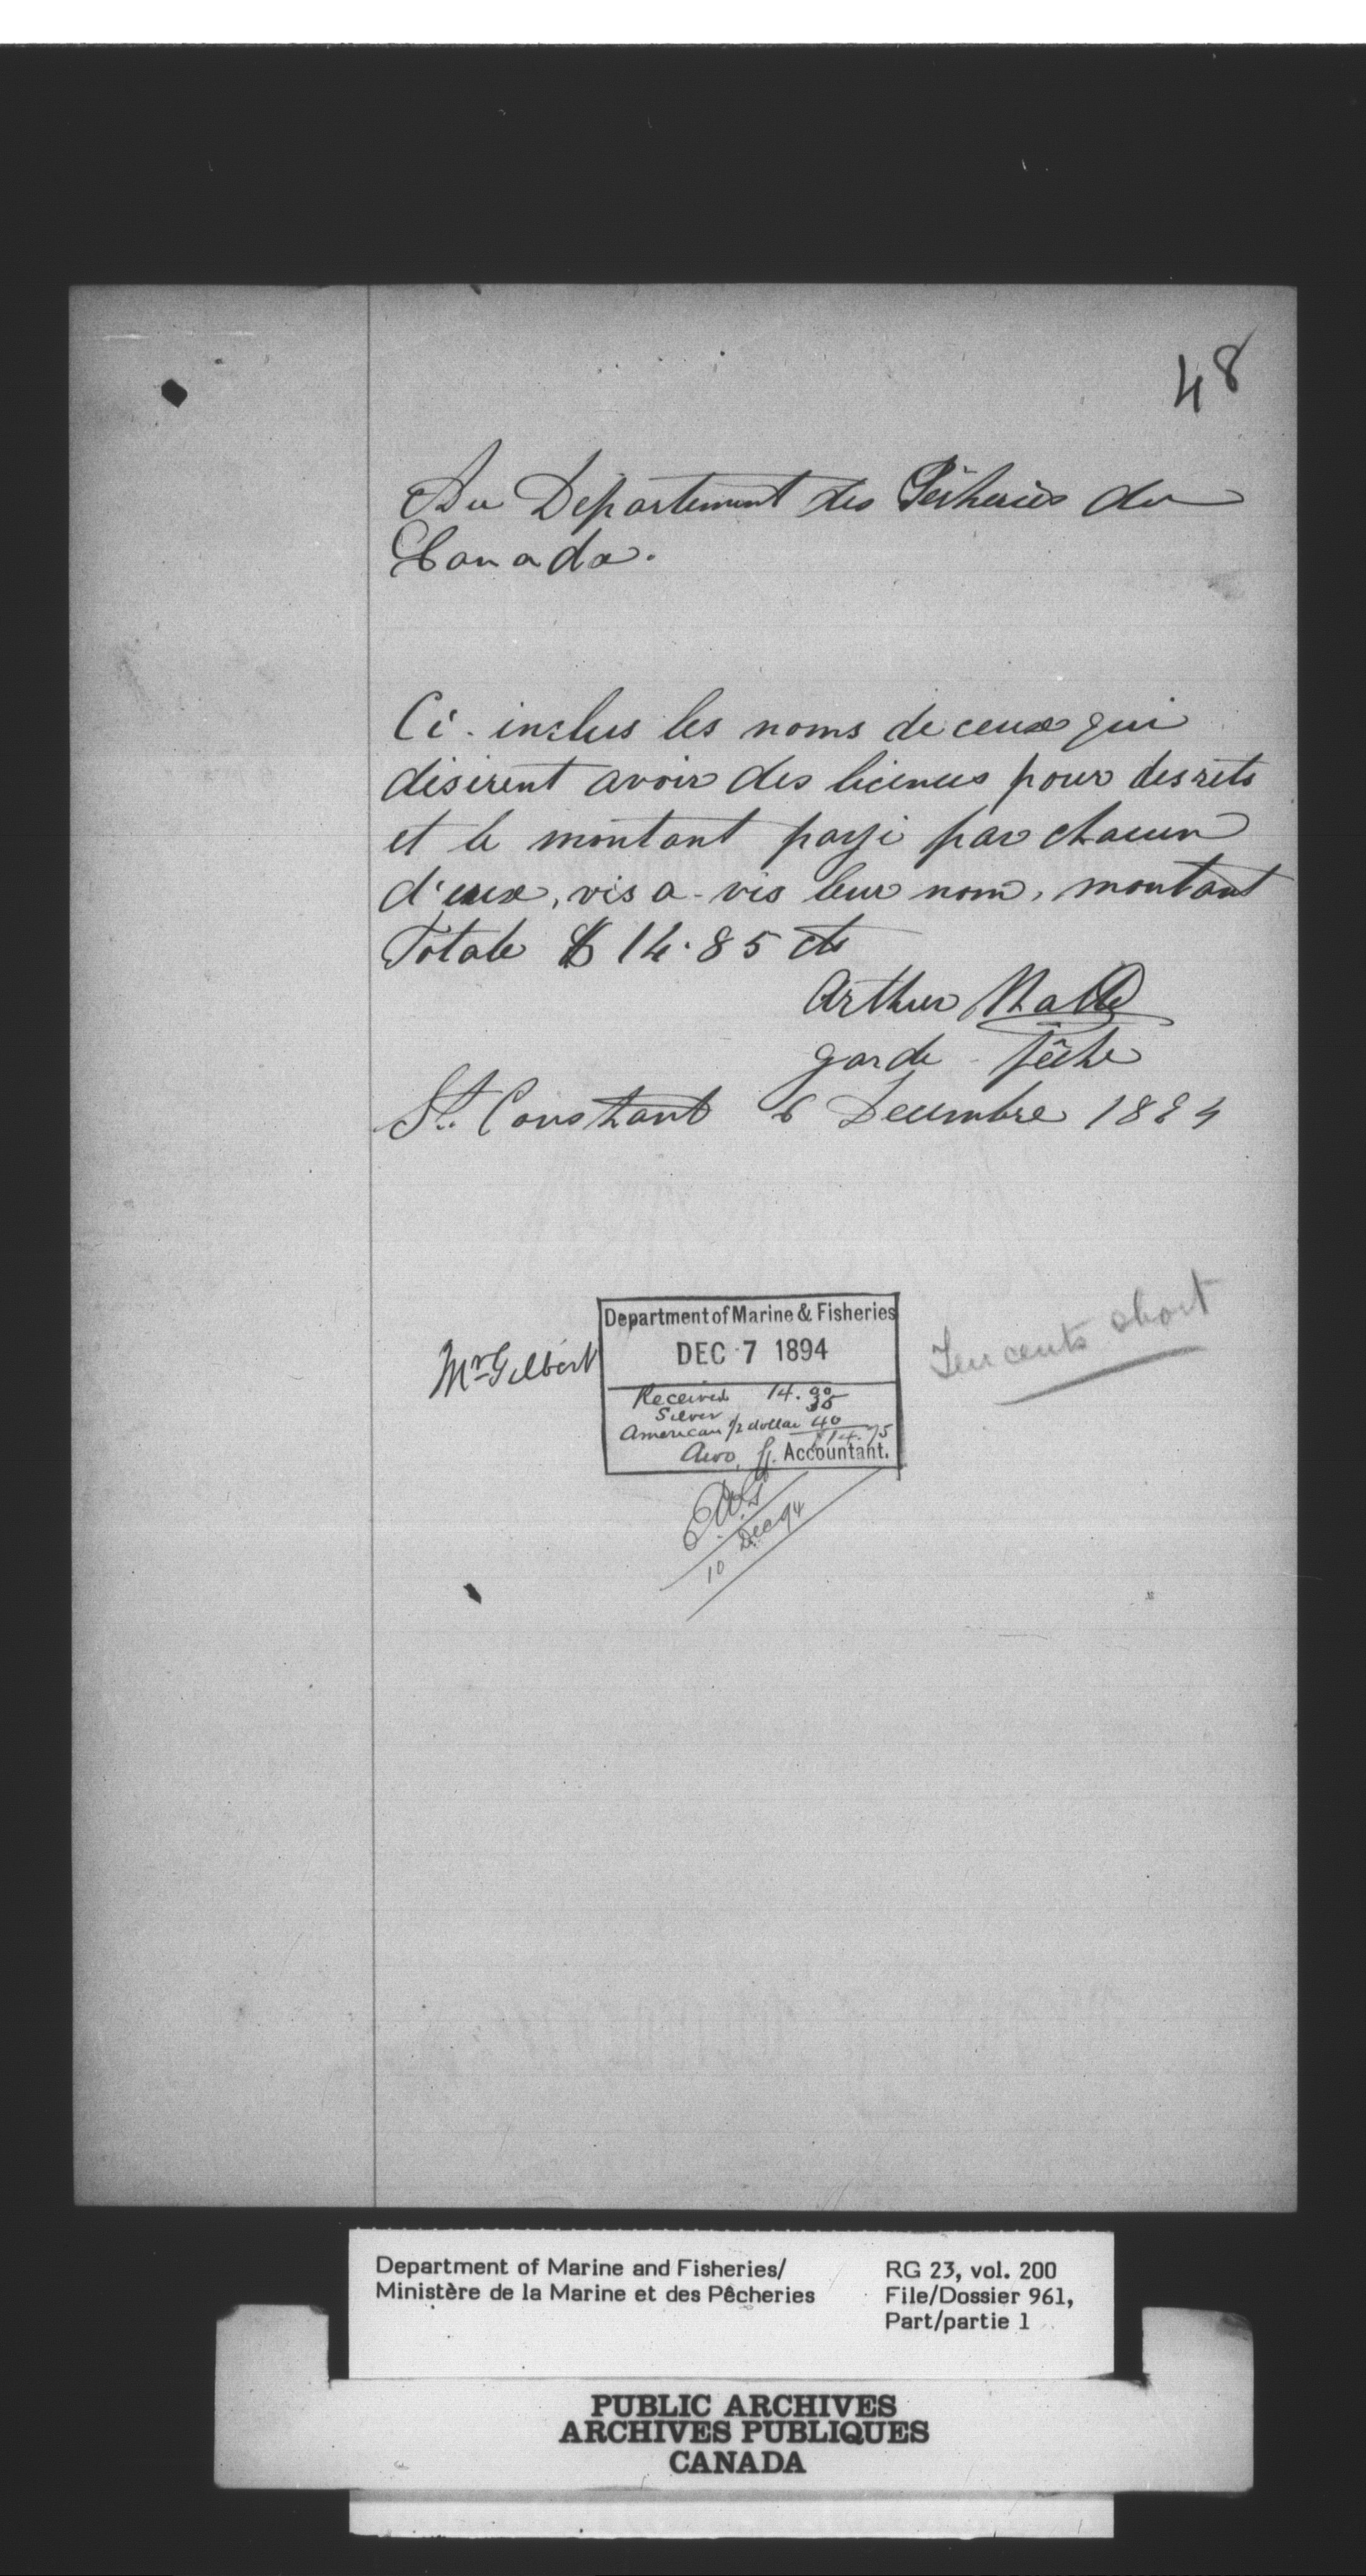 48
Au Département des Pêcheries du
Canada.
Ci-inclus les noms de ceux qui
désirent avoir des licences pour des rêts
et le montant payé par chacun
d'eux, vis a-vis leur nom, montant
Totale $14.85 cts
Arthur
garde-pêche
St. Constant 6 Decembre 1894
Department of Marine & Fisheries
DEC 7 1894
Mr Gilbert
Ten cents short
Received 14.00
Silver 35
American 1/2 dollar 40
$14.75
Accountant.
10 Dec 94
Department of Marine and Fisheries/
Ministère de la Marine et des Pêcheries
RG 23, vol. 200
File/Dossier 961,
Part/partie 1
PUBLIC ARCHIVES
ARCHIVES PUBLIQUES
CANADA